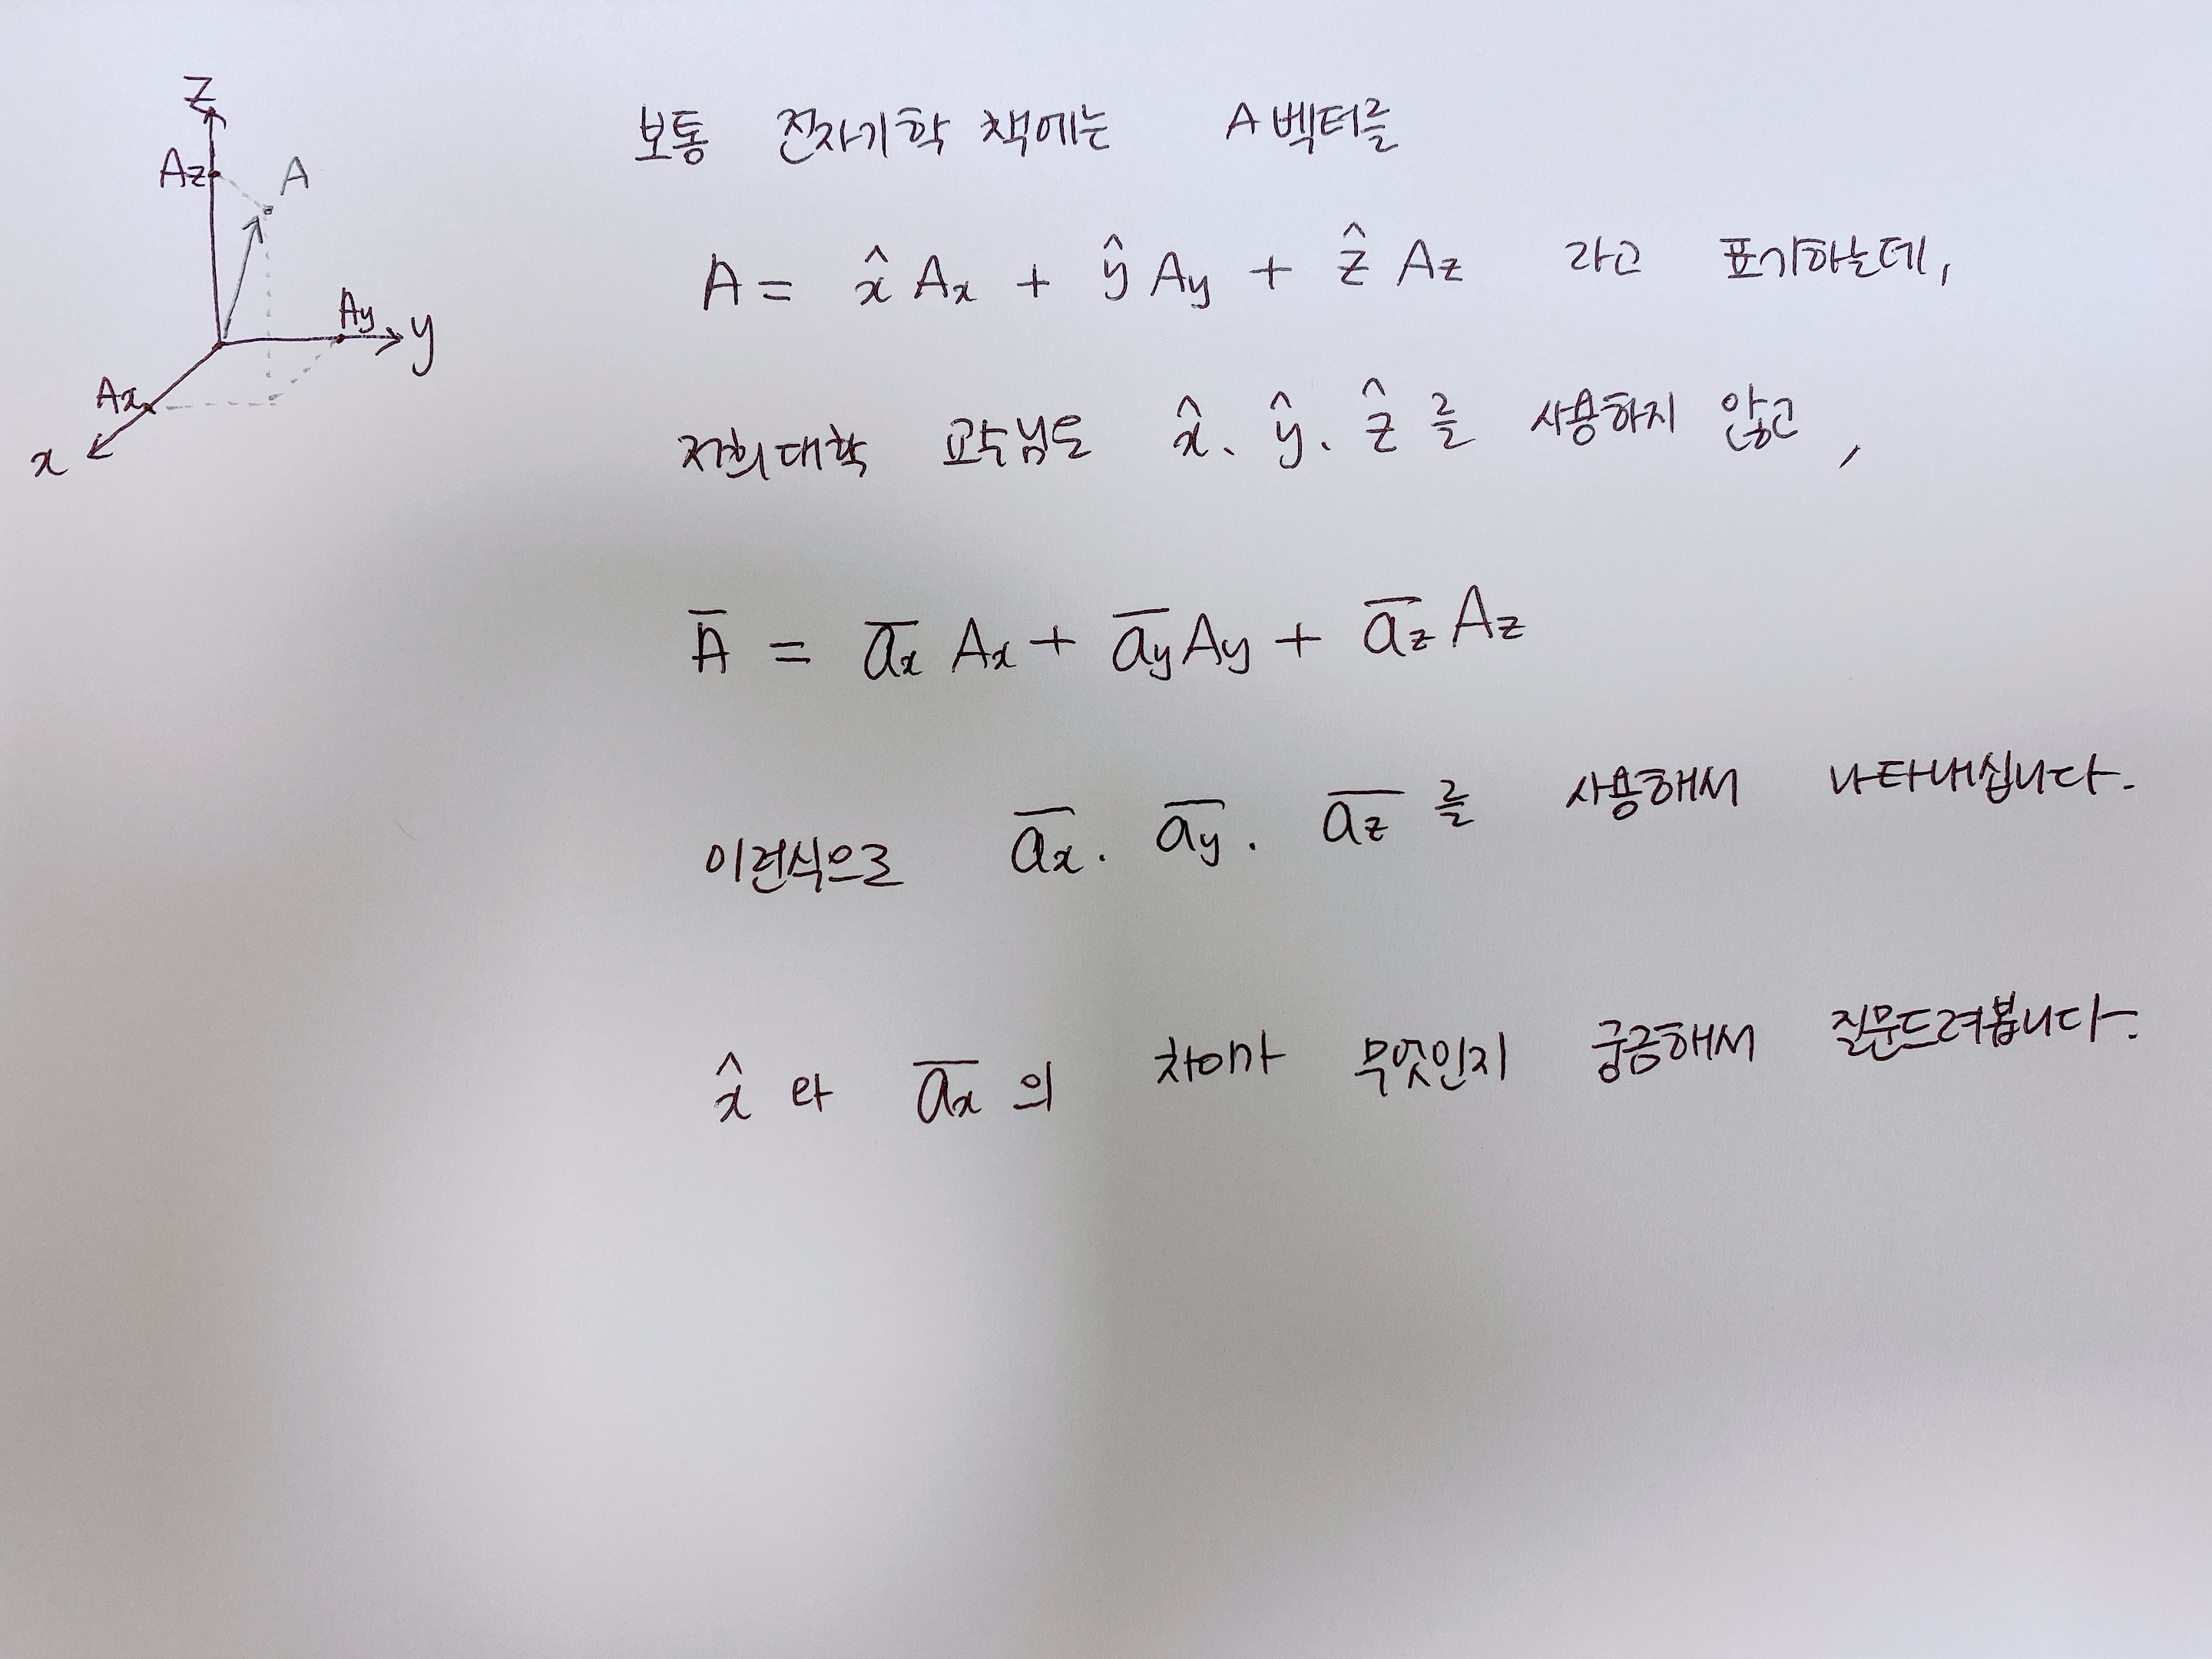 Z
Az
A
Ay
y
Ax
x
보통 전자기학 책에는 A벡터를
A = x̂ Ax + ŷ Ay + ẑ Az 라고 표기하는데,
저희대학 교수님은 x̂、ŷ、ẑ를 사용하지 않고,
A̅ = a̅x Ax + a̅y Ay + a̅z Az
이런식으로 a̅x. a̅y. a̅z를 사용해서 나타내십니다.
x̂ 와 a̅x의 차이가 무엇인지 궁금해서 질문드려봅니다.